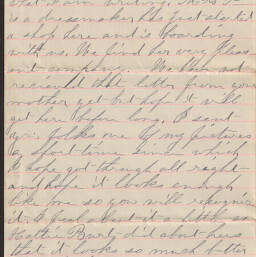 that I am writing. Miss
is a dressmaker has just started
a shop here and is boarding
with us. We find her very pleas-
ant company. We have not
recieved that letter from your
mother yet but hope it will
get here before long. I sent
your folks one of my pictures
a short time since which
I hope got through all right
and hope it looks enough
like me so you will recognize
it. I feel about it a little as
Hattie Burt did about hers
that it looks so much better